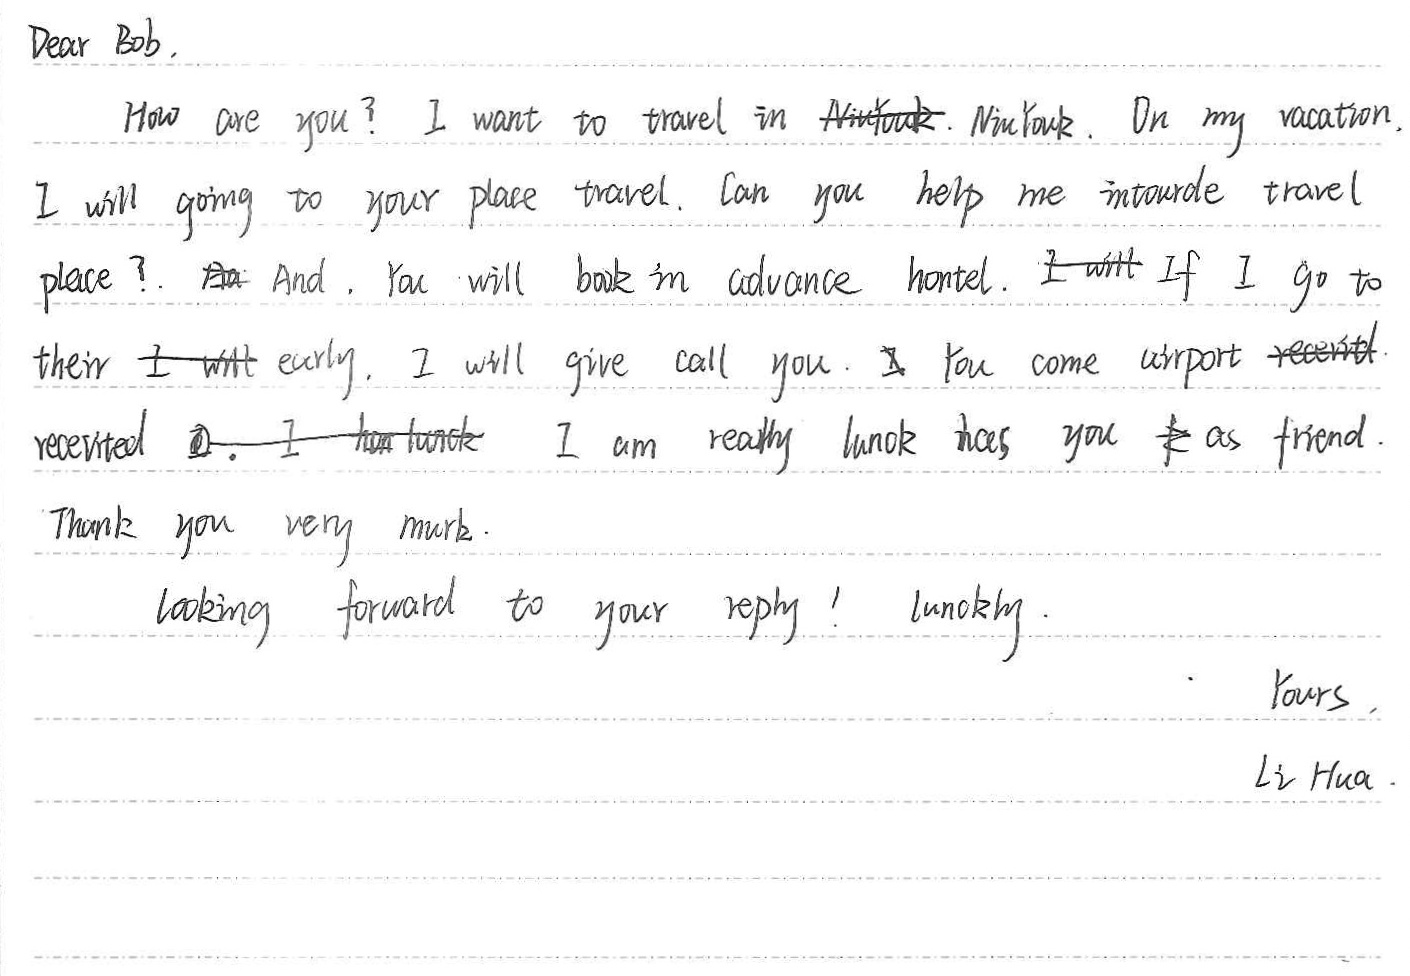 Dear Bob,
How are you? I want to travel in NiuYouk. NiuYouk. On my vacation,
I will going to your place travel. Can you help me intourde travel
place?. And, You will book in advance hontel. I will If I go to
their I will early, I will give call you. I You come airport recevitd
recevited I han lunck I am really lunok has you as friend.
Thank you very murk.
Looking forward to your reply! lunokly.
Yours,
Li Hua.